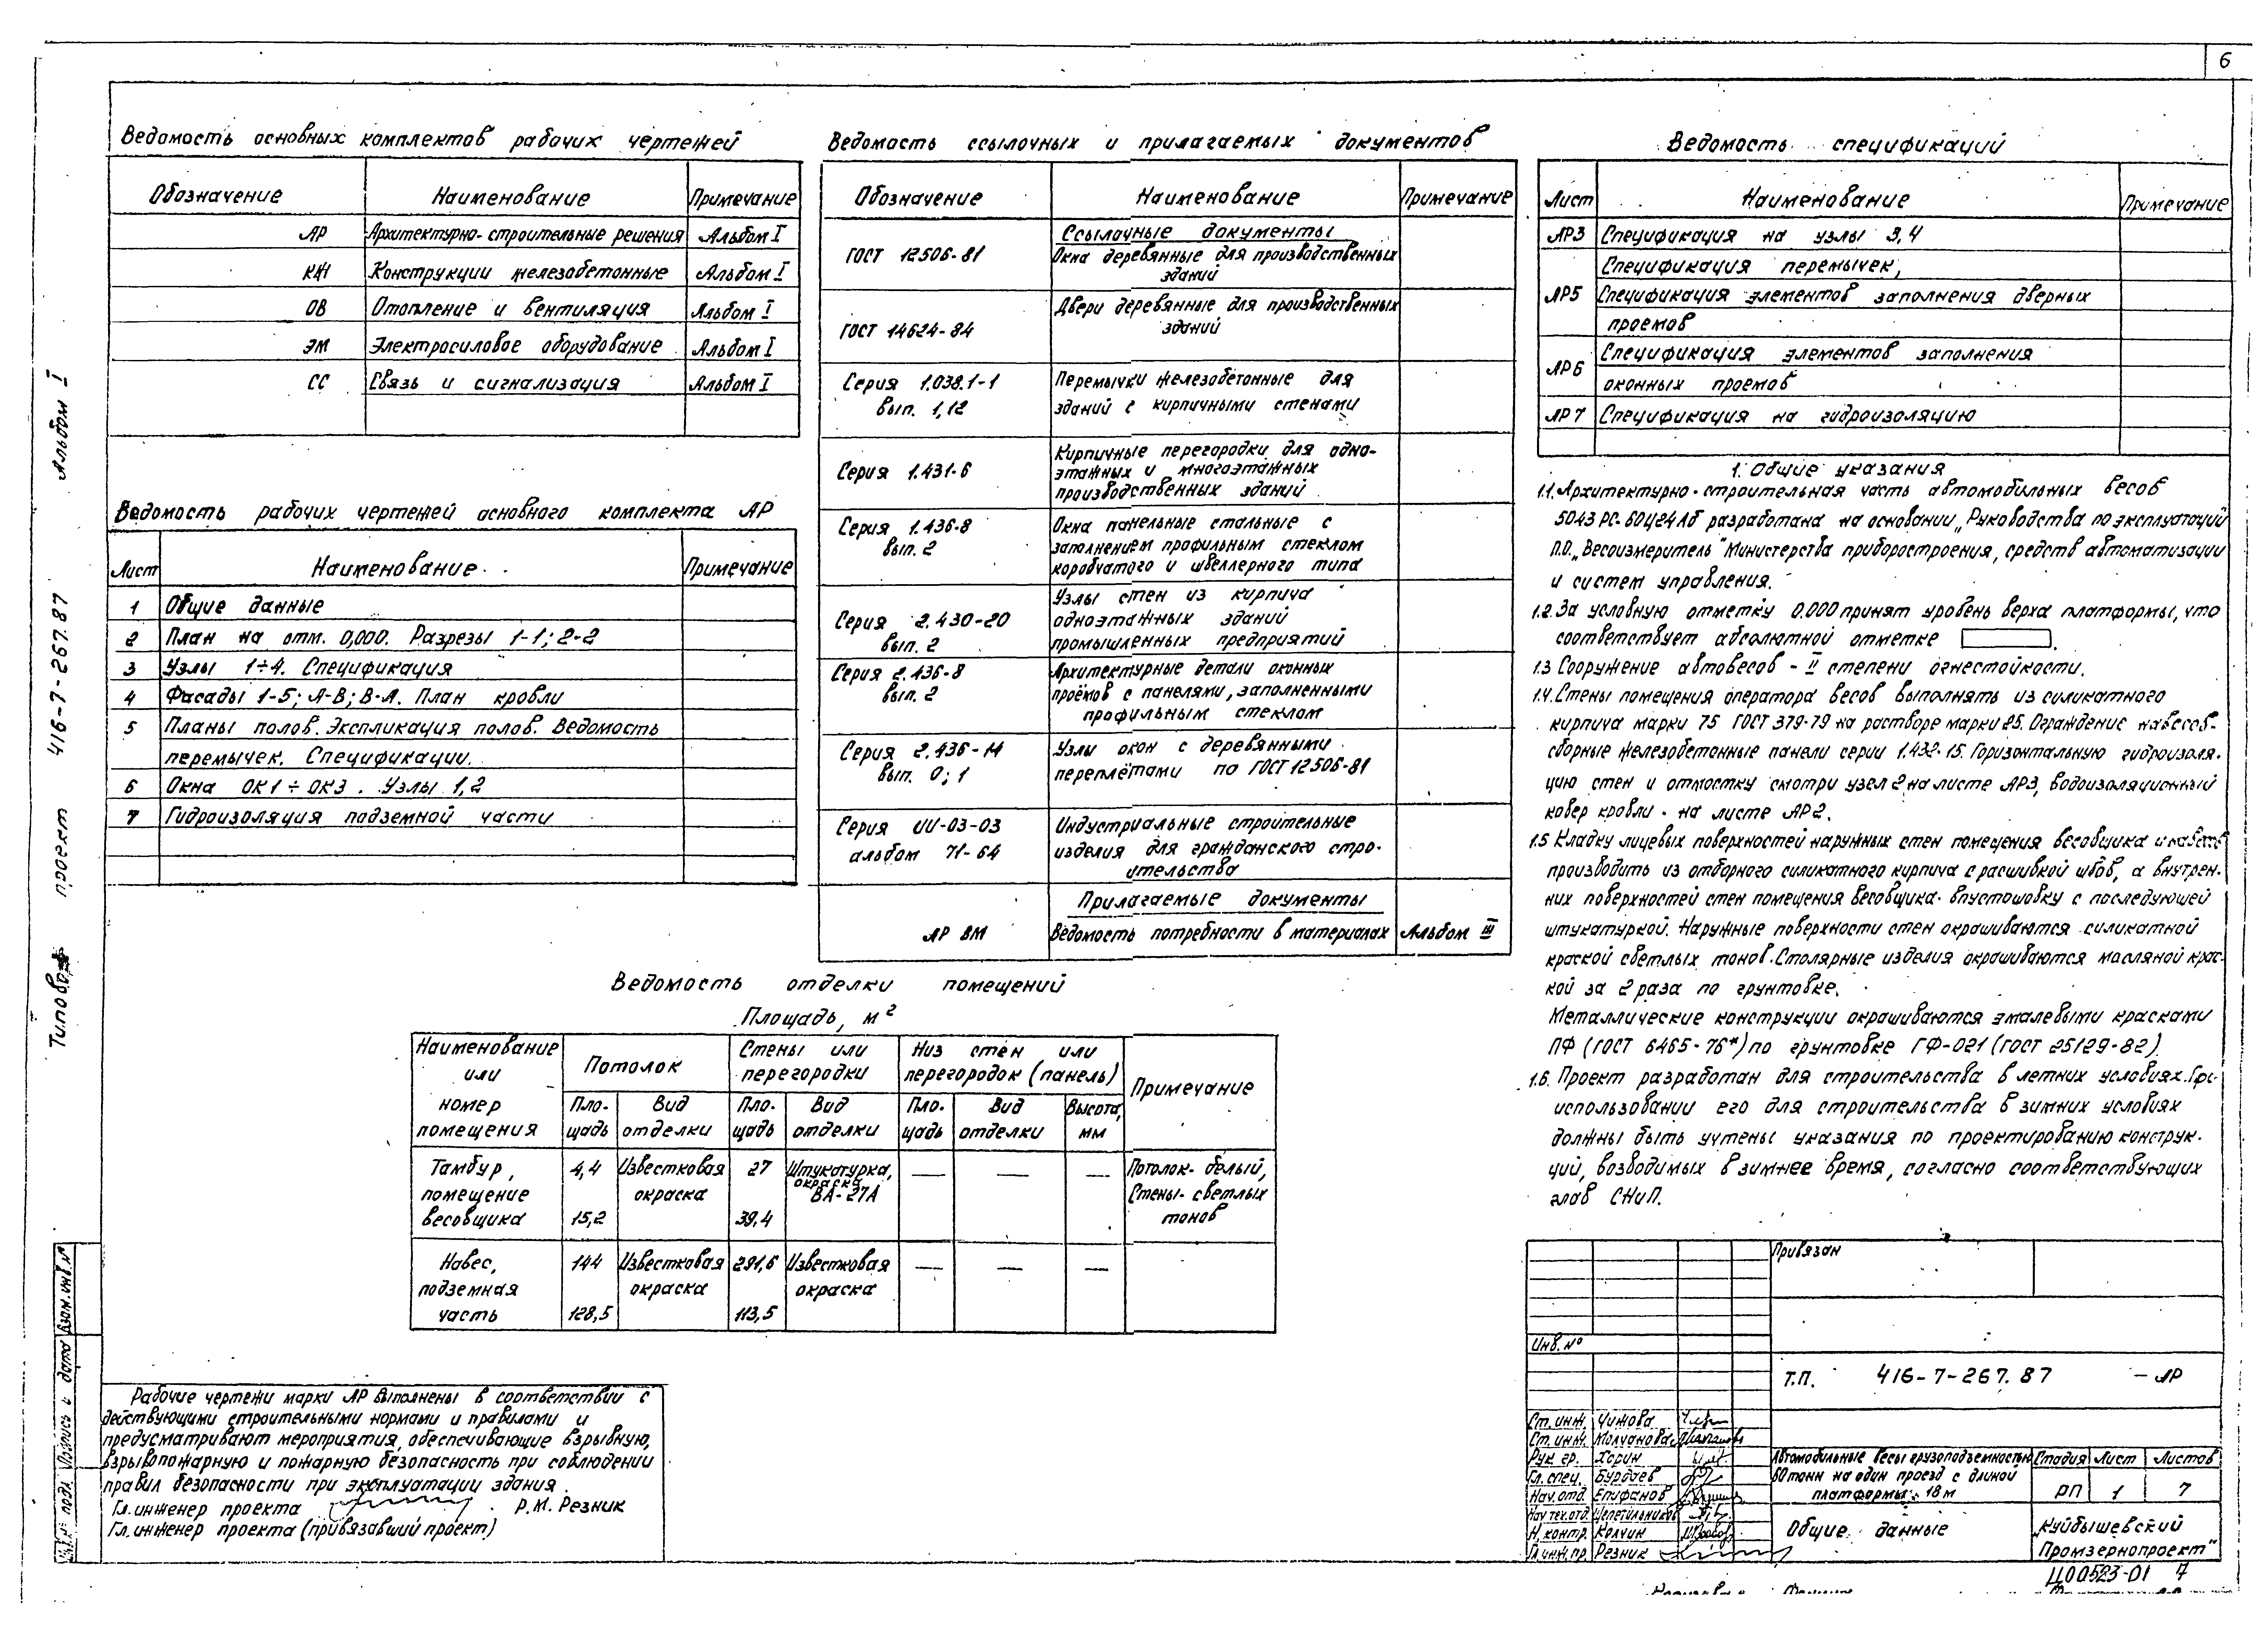 6
Ведомость основных комплектов рабочих чертежей
Обозначение Наименование Примечание
АР Архитектурно-строительные решения Альбом I
КЖ Конструкции железобетонные Альбом I
ОВ Отопление и вентиляция Альбом I
ЭМ Электросиловое оборудование Альбом I
СС Связь и сигнализация Альбом I
Ведомость рабочих чертежей основного комплекта АР
Лист Наименование Примечание
1 Общие данные
2 План на отм. 0,000. Разрезы 1-1; 2-2
3 Узлы 1÷4. Спецификация
4 Фасады 1-5; А-В; В-А. План кровли
5 Планы полов. Экспликация полов. Ведомость
перемычек. Спецификации.
6 Окна ОК1÷ОК3. Узлы 1,2
7 Гидроизоляция подземной части
Ведомость ссылочных и прилагаемых документов
Обозначение Наименование Примечание
Ссылочные документы
ГОСТ 12506-81 Окна деревянные для производственных
зданий
ГОСТ 14624-84 Двери деревянные для производственных
зданий
Серия 1.038.1-1 Перемычки железобетонные для
вып. 1,12 зданий с кирпичными стенами
Серия 1.431-6 Кирпичные перегородки для одно-
этажных и многоэтажных
производственных зданий
Серия 1.436-8 Окна панельные стальные с
вып. 2 заполнением профильным стеклом
коробчатого и швеллерного типа
Серия 2.430-20 Узлы стен из кирпича
вып. 2 одноэтажных зданий
промышленных предприятий
Серия 2.436-8 Архитектурные детали оконных
вып. 2 проёмов с панелями, заполненными
профильным стеклом
Серия 2.436-14 Узлы окон с деревянными
вып. 0; 1 переплётами по ГОСТ 12506-81
Серия ИИ-03-03 Индустриальные строительные
альбом 71-64 изделия для гражданского стро-
ительства
Прилагаемые документы
АР ВМ Ведомость потребности в материалах Альбом III
Ведомость спецификаций
Лист Наименование Примечание
АР3 Спецификация на узлы 3,4
Спецификация перемычек,
АР5 Спецификация элементов заполнения дверных
проемов
АР6 Спецификация элементов заполнения
оконных проемов
АР7 Спецификация на гидроизоляцию
1. Общие указания
1.1. Архитектурно-строительная часть автомобильных весов
5043 РС-60Ц24Лб разработана на основании „Руководства по эксплуатации
П.О. „Весоизмеритель" Министерства приборостроения, средств автоматизации
и систем управления.
1.2. За условную отметку 0.000 принят уровень верха платформы, что
соответствует абсолютной отметке .
1.3 Сооружение автовесов - II степени огнестойкости.
1.4. Стены помещения оператора весов выполнять из силикатного
кирпича марки 75 ГОСТ 379-79 на растворе марки 25. Ограждение навесов-
сборные железобетонные панели серии 1.432-15. Горизонтальную гидроизоля-
цию стен и отмостку смотри узел 2 на листе АР3, водоизоляционный
ковер кровли - на листе АР2.
1.5 Кладку лицевых поверхностей наружных стен помещения весовщика и навесов
производить из отборного силикатного кирпича с расшивкой швов, а внутрен-
них поверхностей стен помещения весовщика - впустошовку с последующей
штукатуркой. Наружные поверхности стен окрашиваются силикатной
краской светлых тонов. Столярные изделия окрашиваются масляной крас-
кой за 2 раза по грунтовке.
Металлические конструкции окрашиваются эмалевыми красками
ПФ (ГОСТ 6465-76*) по грунтовке ГФ-021 (ГОСТ 25129-82)
1.6. Проект разработан для строительства в летних условиях. При
использовании его для строительства в зимних условиях
должны быть учтены указания по проектированию конструк-
ций, возводимых в зимнее время, согласно соответствующих
глав СНиП.
Ведомость отделки помещений
Площадь, м2
Наименование или номер помещения Потолок Стены или перегородки Низ стен или перегородок (панель) Примечание
Пло-щадь Вид отделки Пло-щадь Вид отделки Пло-щадь Вид отделки Высота, мм
Тамбур, 4,4 Известковая 27 Штукатурка, — — — Потолок - белый,
помещение окраска окраска ВА-27А Стены - светлых
весовщика 15,2 39,4 тонов
Навес, 144 Известковая 291,6 Известковая — — —
подземная окраска окраска
часть 128,5 113,5
Рабочие чертежи марки АР выполнены в соответствии с
действующими строительными нормами и правилами и
предусматривают мероприятия, обеспечивающие взрывную,
взрывопожарную и пожарную безопасность при соблюдении
правил безопасности при эксплуатации здания.
Гл. инженер проекта Р.М. Резник
Гл. инженер проекта (привязавший проект)
Типовой проект 416-7-267.87 Альбом I
Инв. № подл. Подпись и дата Взам. инв. №
Привязан
Инв. №
Т.П. 416-7-267.87 - АР
Ст. инж. Чижова
Ст. инж. Молчанова
Рук. гр. Хорин
Гл. спец. Бурдаев
Нач. отд. Епифанов
Нач. тех. отд. Щепетильников
Н. контр. Колчин
Гл. инж. пр. Резник
Автомобильные весы грузоподъемностью
60 тонн на один проезд с длиной
платформы 18 м
Стадия Лист Листов
РП 1 7
Общие данные
„Куйбышевский
Промзернопроект"
Ц00523-01 7